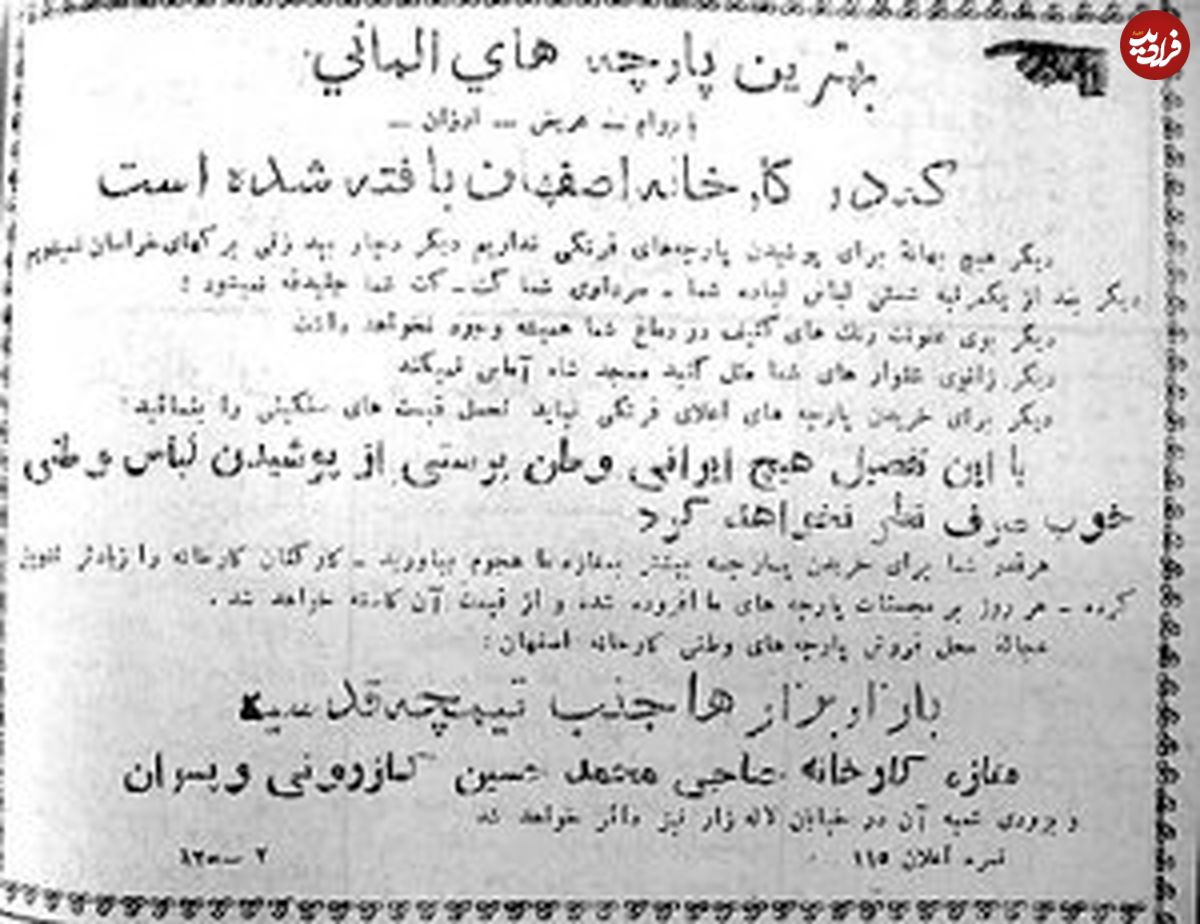 فرادید
بهترین پارچه های المانی
با دوام — عریض — ارزان —
که در کارخانه اصفهان بافته شده است
دیگر هیچ بهانهٔ برای پوشیدن پارچه‌های فرنگی نداریم دیگر دچار بید زنی برکهای خراسان نمیشویم
دیگر بعد از یکمرتبه شستن لباس لباده شما — سرداری شما کت — کت شما جلیدقه نمیشود :
دیگر بوی عفونت رنك های کثیف در دماغ شما همیشه وجود نخواهد داشت
دیگر زانوی شلوار های شما مثل گنبد مسجد شاه آماس نمیکند
دیگر برای خریدن پارچه های اعلای فرنگی نباید تحمل قیمت های سنگینی را بنمائید
با این تفصیل هیچ ایرانی وطن پرستی از پوشیدن لباس وطنی
خوب صرف نظر نخواهد کرد
هرقدر شما برای خریدن پارچه بیشتر بمغازه ما هجوم بیاورید — کارکنان کارخانه را زیادتر تشویق
کرده — هر روز بر محسنات پارچه های ما افزوده شده و از قیمت آن کاسته خواهد شد .
عجالة محل فروش پارچه های وطنی کارخانه اصفهان :
بازار بزاز ها جنب تیمچه قدسیه
مغازه کارخانه حاجی محمد حسین کازرونی و پسران
و بزودی شعبه آن در خیابان لاله زار نیز دائر خواهد شد
نمره اعلان ١١٥